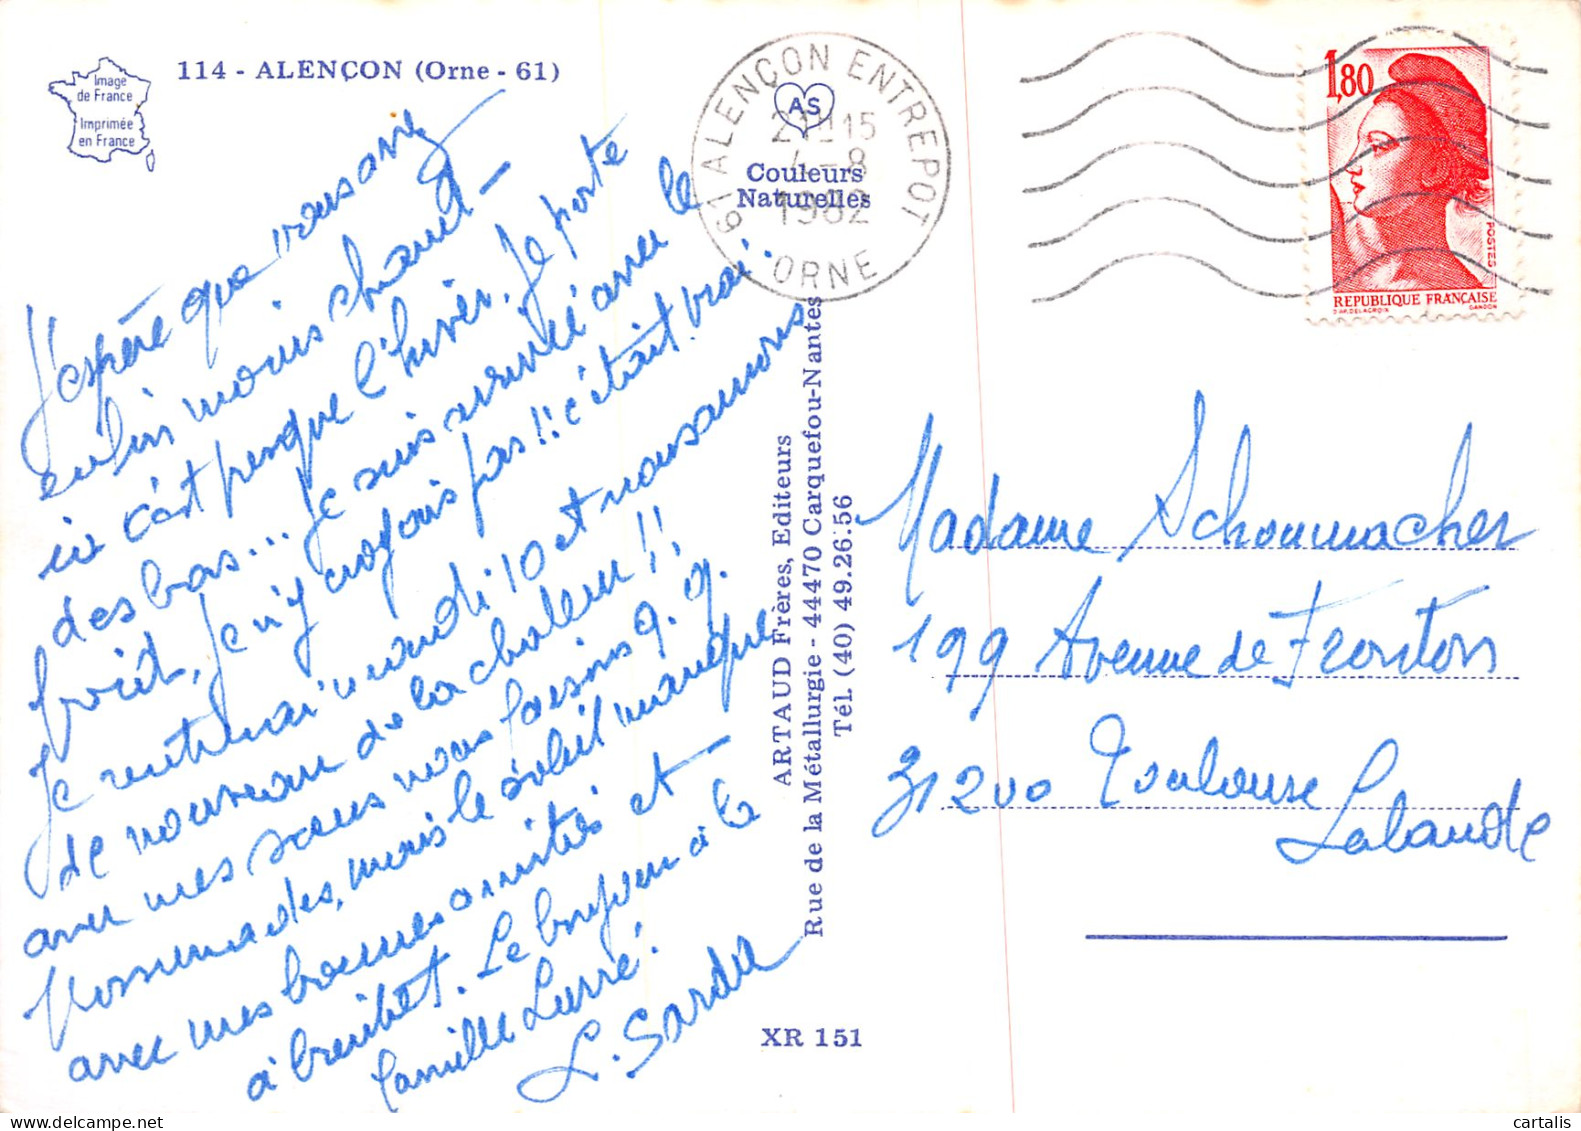 114 - ALENÇON (Orne - 61)
Image
de France
Imprimée
en France
J'espère que vous avez
enfin moins chaud -
ici c'est presque l'hiver. Je porte
des bas... Je suis arrivée avec le
froid, je n'y croyais pas!! c'était vrai.
Je rentrerai mardi 10 et nous aurons
de nouveau de la chaleur!!
avec mes sœurs nous faisons q. q.
promenades, mais le soleil manque
avec mes bonnes amitiés et -
à bientôt. Le bonjour à la
famille Lurré.
L. Sarda
61 ALENÇON ENTREPOT
ORNE
21H15
4-8
1982
AS
Couleurs
Naturelles
ARTAUD Frères, Editeurs
Rue de la Métallurgie - 44470 Carquefou-Nantes
Tél. (40) 49.26.56
XR 151
1,80
POSTES
REPUBLIQUE FRANÇAISE
D'AP. DELACROIX
GANDON
Madame Schoumacher
199 Avenue de Fronton
31200 Toulouse
Lalande
cartalis